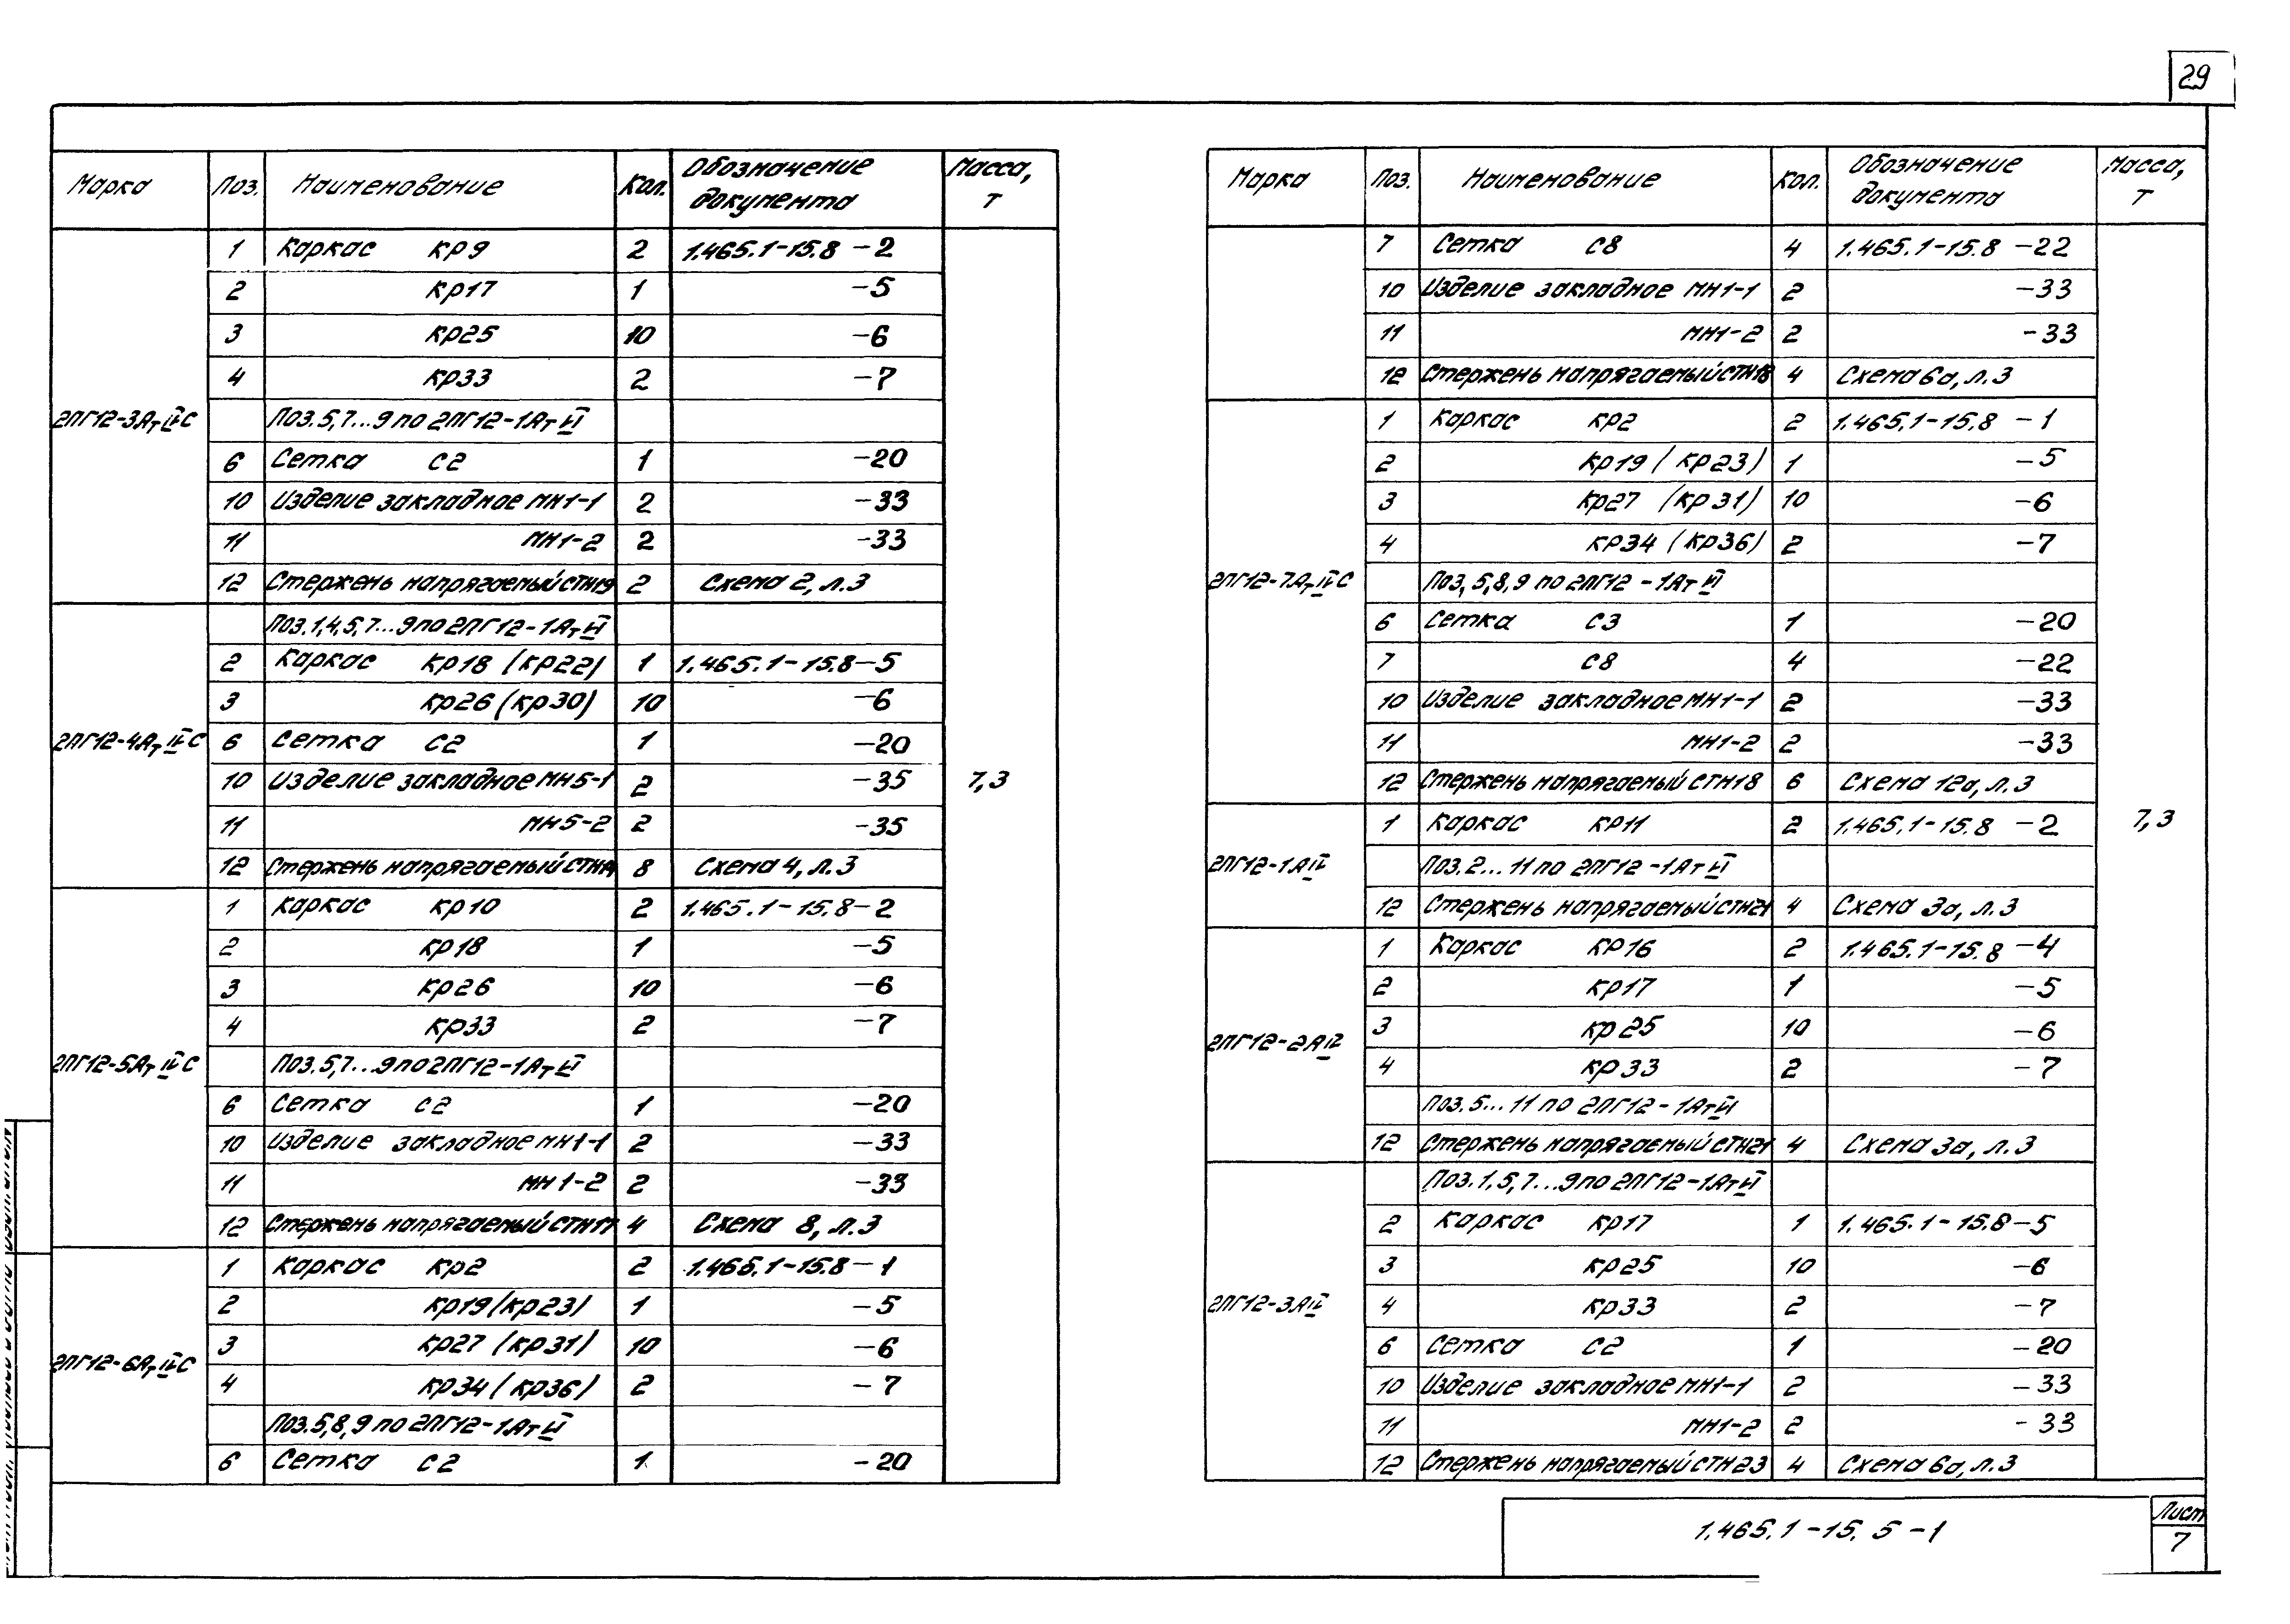 29
Марка Поз. Наименование Кол. Обозначение документа Масса, т
1 Каркас КР9 2 1.465.1-15.8 -2
2 КР17 1 -5
3 КР25 10 -6
4 КР33 2 -7
2ПГ12-3АтIVС Поз. 5,7...9 по 2ПГ12-1АтVI
6 Сетка С2 1 -20
10 Изделие закладное МН1-1 2 -33
11 МН1-2 2 -33
12 Стержень напрягаемый СТН19 2 Схема 2, л.3
Поз. 1,4,5,7...9 по 2ПГ12-1АтVI
2 Каркас КР18 (КР22) 1 1.465.1-15.8-5
3 КР26 (КР30) 10 -6
2ПГ12-4АтIVС 6 Сетка С2 1 -20
10 Изделие закладное МН5-1 2 -35 7,3
11 МН5-2 2 -35
12 Стержень напрягаемый 8 Схема 4, л.3
1 Каркас КР10 2 1.465.1-15.8-2
2 КР18 1 -5
3 КР26 10 -6
4 КР33 2 -7
2ПГ12-5АтIVС Поз. 5,7...9 по 2ПГ12-1АтVI
6 Сетка С2 1 -20
10 Изделие закладное МН1-1 2 -33
11 МН1-2 2 -33
12 Стержень напрягаемый СТН17 4 Схема 8, л.3
1 Каркас КР2 2 1.465.1-15.8-1
2 КР19 (КР23) 1 -5
3 КР27 (КР31) 10 -6
2ПГ12-6АтIVС
4 КР34 (КР36) 2 -7
Поз. 5,8,9 по 2ПГ12-1АтVI
6 Сетка С2 1 -20
Марка Поз. Наименование Кол. Обозначение документа Масса, т
7 Сетка С8 4 1.465.1-15.8 -22
10 Изделие закладное МН1-1 2 -33
11 МН1-2 2 -33
12 Стержень напрягаемый СТН18 4 Схема 6а, л.3
1 Каркас КР2 2 1.465.1-15.8 -1
2 КР19 (КР23) 1 -5
3 КР27 (КР31) 10 -6
4 КР34 (КР36) 2 -7
2ПГ12-7АтIVС Поз. 5,8,9 по 2ПГ12-1АтVI
6 Сетка С3 1 -20
7 С8 4 -22
10 Изделие закладное МН1-1 2 -33
11 МН1-2 2 -33
12 Стержень напрягаемый СТН18 6 Схема 12а, л.3
1 Каркас КР11 2 1.465.1-15.8 -2 7,3
2ПГ12-1АIV Поз. 2...11 по 2ПГ12-1АтVI
12 Стержень напрягаемый СТН21 4 Схема 3а, л.3
1 Каркас КР16 2 1.465.1-15.8 -4
2 КР17 1 -5
3 КР25 10 -6
2ПГ12-2АIV
4 КР33 2 -7
Поз. 5...11 по 2ПГ12-1АтVI
12 Стержень напрягаемый СТН21 4 Схема 3а, л.3
Поз. 1,5,7...9 по 2ПГ12-1АтVI
2 Каркас КР17 1 1.465.1-15.8-5
3 КР25 10 -6
2ПГ12-3АIV 4 КР33 2 -7
6 Сетка С2 1 -20
10 Изделие закладное МН1-1 2 -33
11 МН1-2 2 -33
12 Стержень напрягаемый СТН23 4 Схема 6а, л.3
1.465.1-15.5-1
Лист
7